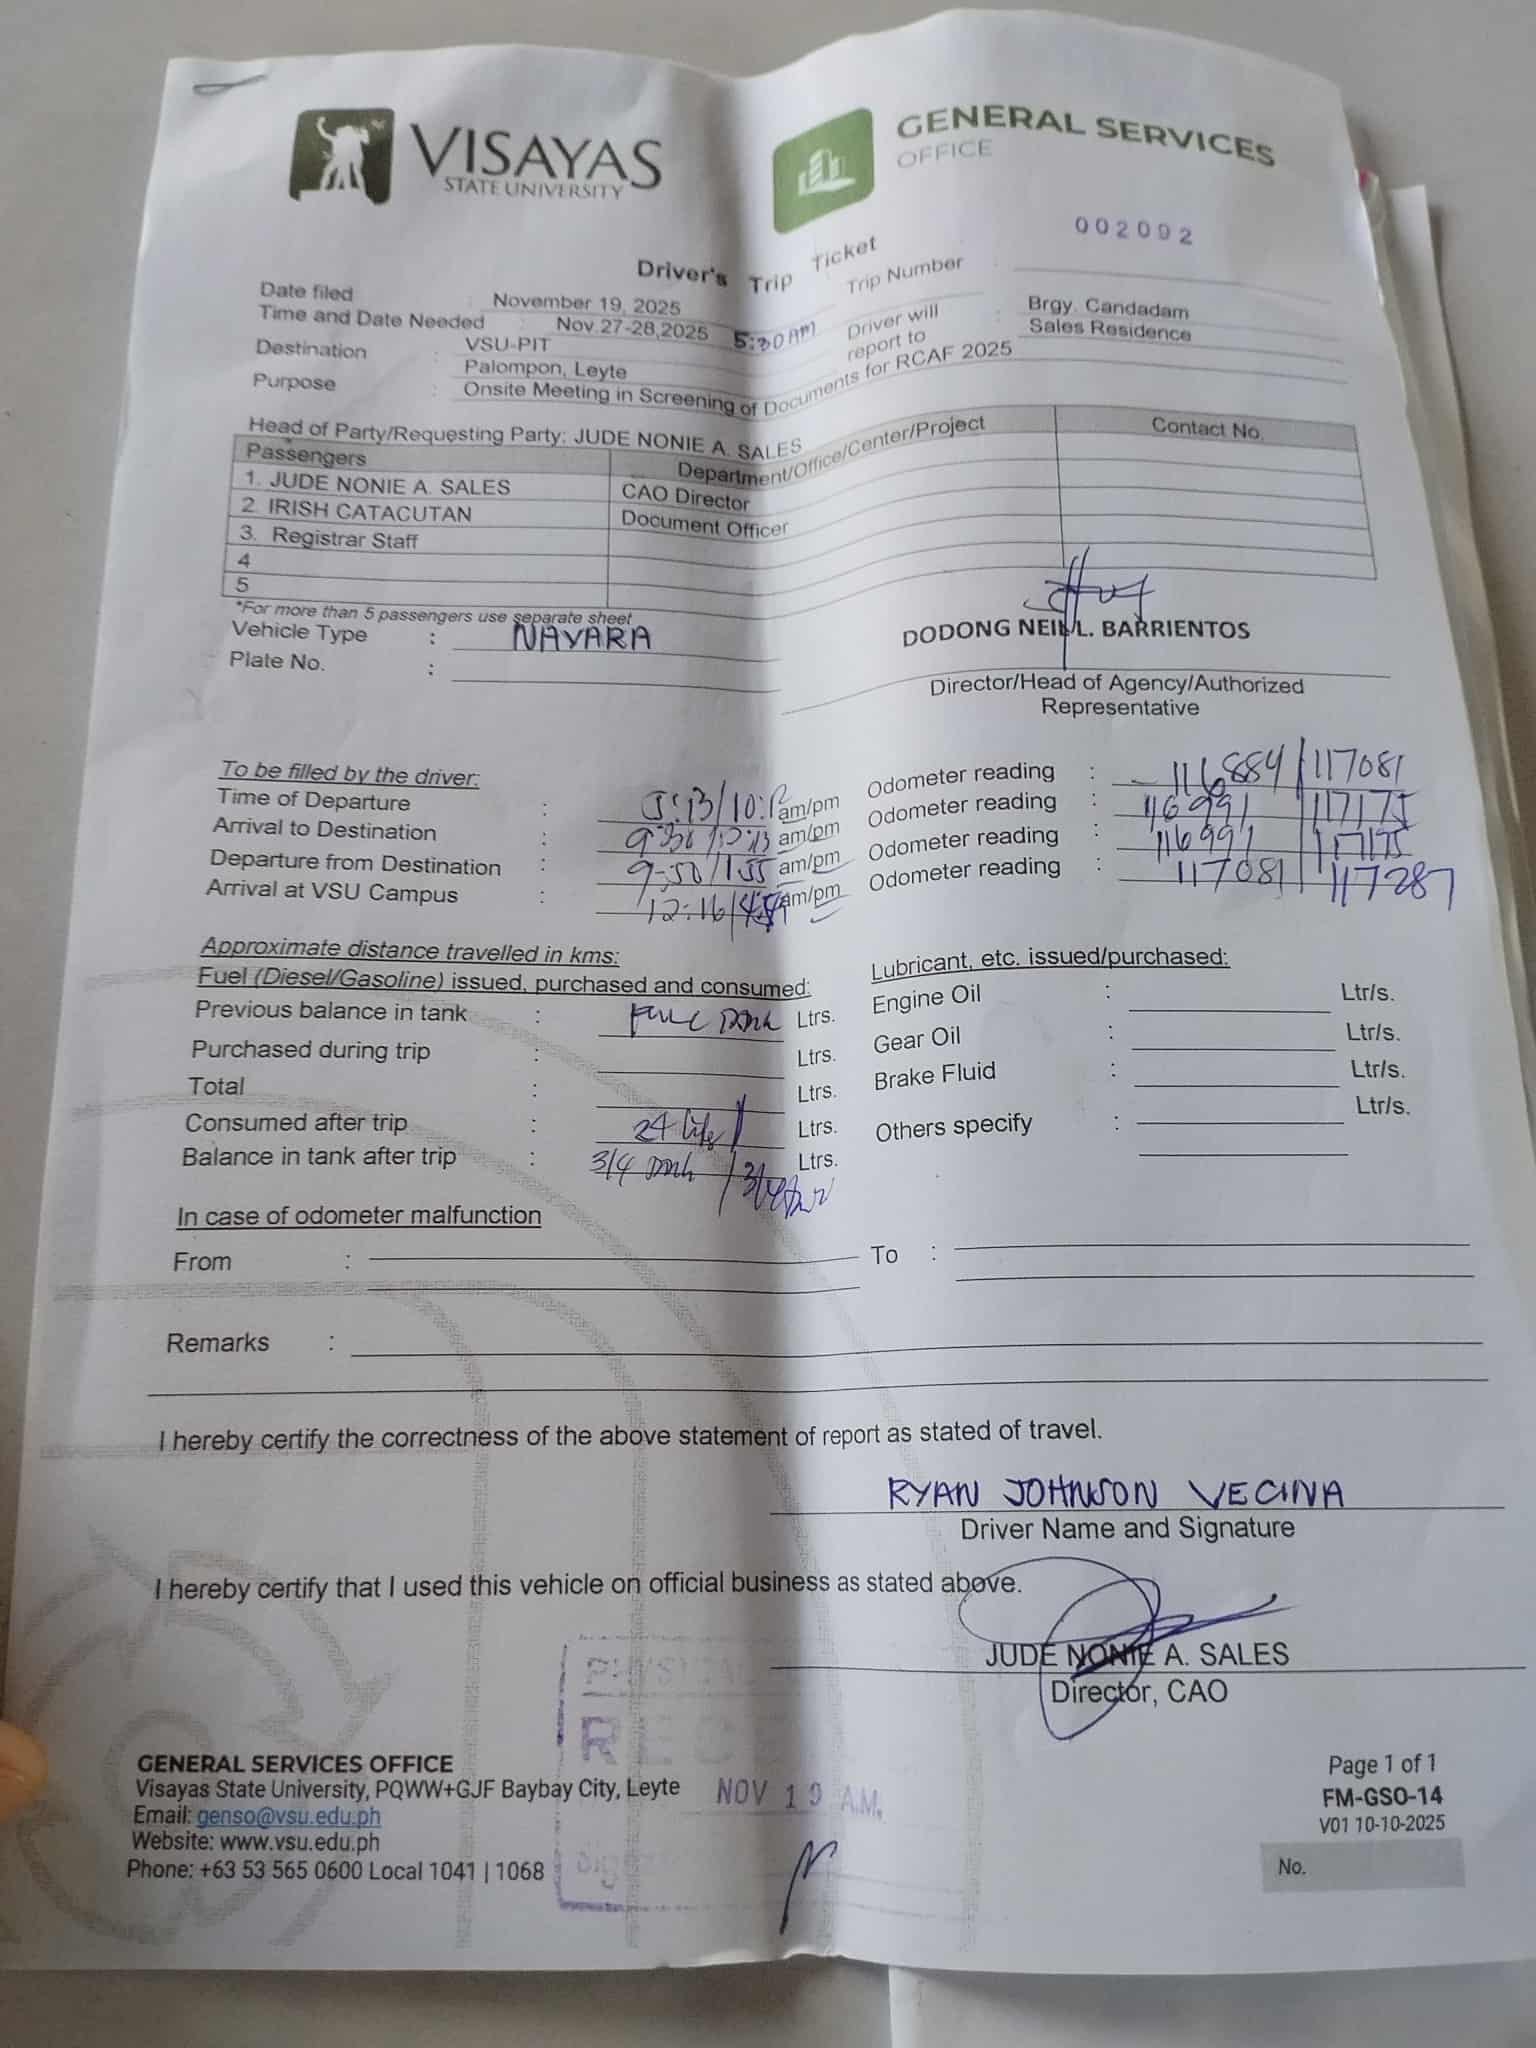 VISAYAS
STATE UNIVERSITY
GENERAL SERVICES
OFFICE
002092
Driver's Trip Ticket
Date filed : November 19, 2025 Trip Number :
Time and Date Needed : Nov.27-28,2025 5:30AM Driver will report to : Brgy. Candadam
Sales Residence
Destination : VSU-PIT
Palompon, Leyte
Purpose : Onsite Meeting in Screening of Documents for RCAF 2025
Head of Party/Requesting Party: JUDE NONIE A. SALES
Passengers Department/Office/Center/Project Contact No.
1. JUDE NONIE A. SALES CAO Director
2. IRISH CATACUTAN Document Officer
3. Registrar Staff
4
5
*For more than 5 passengers use separate sheet
Vehicle Type : NAVARA
Plate No. :
DODONG NEIL L. BARRIENTOS
Director/Head of Agency/Authorized
Representative
To be filled by the driver:
Time of Departure : 5:13/ am/pm Odometer reading : 116884 / 117081
Arrival to Destination : am/pm Odometer reading : 116991 117175
Departure from Destination : 9:50/1:55 am/pm Odometer reading : 116991 117175
Arrival at VSU Campus : 12:16/ am/pm Odometer reading : 117081 117287
Approximate distance travelled in kms:
Fuel (Diesel/Gasoline) issued, purchased and consumed: Lubricant, etc. issued/purchased:
Previous balance in tank : Ltrs. Engine Oil : Ltr/s.
Purchased during trip : Ltrs. Gear Oil : Ltr/s.
Total : Ltrs. Brake Fluid : Ltr/s.
Consumed after trip : 24 Ltrs. Others specify : Ltr/s.
Balance in tank after trip : 3/4 / 3/4 Ltrs.
In case of odometer malfunction
From : To :
Remarks :
I hereby certify the correctness of the above statement of report as stated of travel.
RYAN JOHNSON VECINA
Driver Name and Signature
I hereby certify that I used this vehicle on official business as stated above.
JUDE NONIE A. SALES
Director, CAO
NOV 19 A.M.
GENERAL SERVICES OFFICE
Visayas State University, PQWW+GJF Baybay City, Leyte
Email: genso@vsu.edu.ph
Website: www.vsu.edu.ph
Phone: +63 53 565 0600 Local 1041 | 1068
Page 1 of 1
FM-GSO-14
V01 10-10-2025
No.